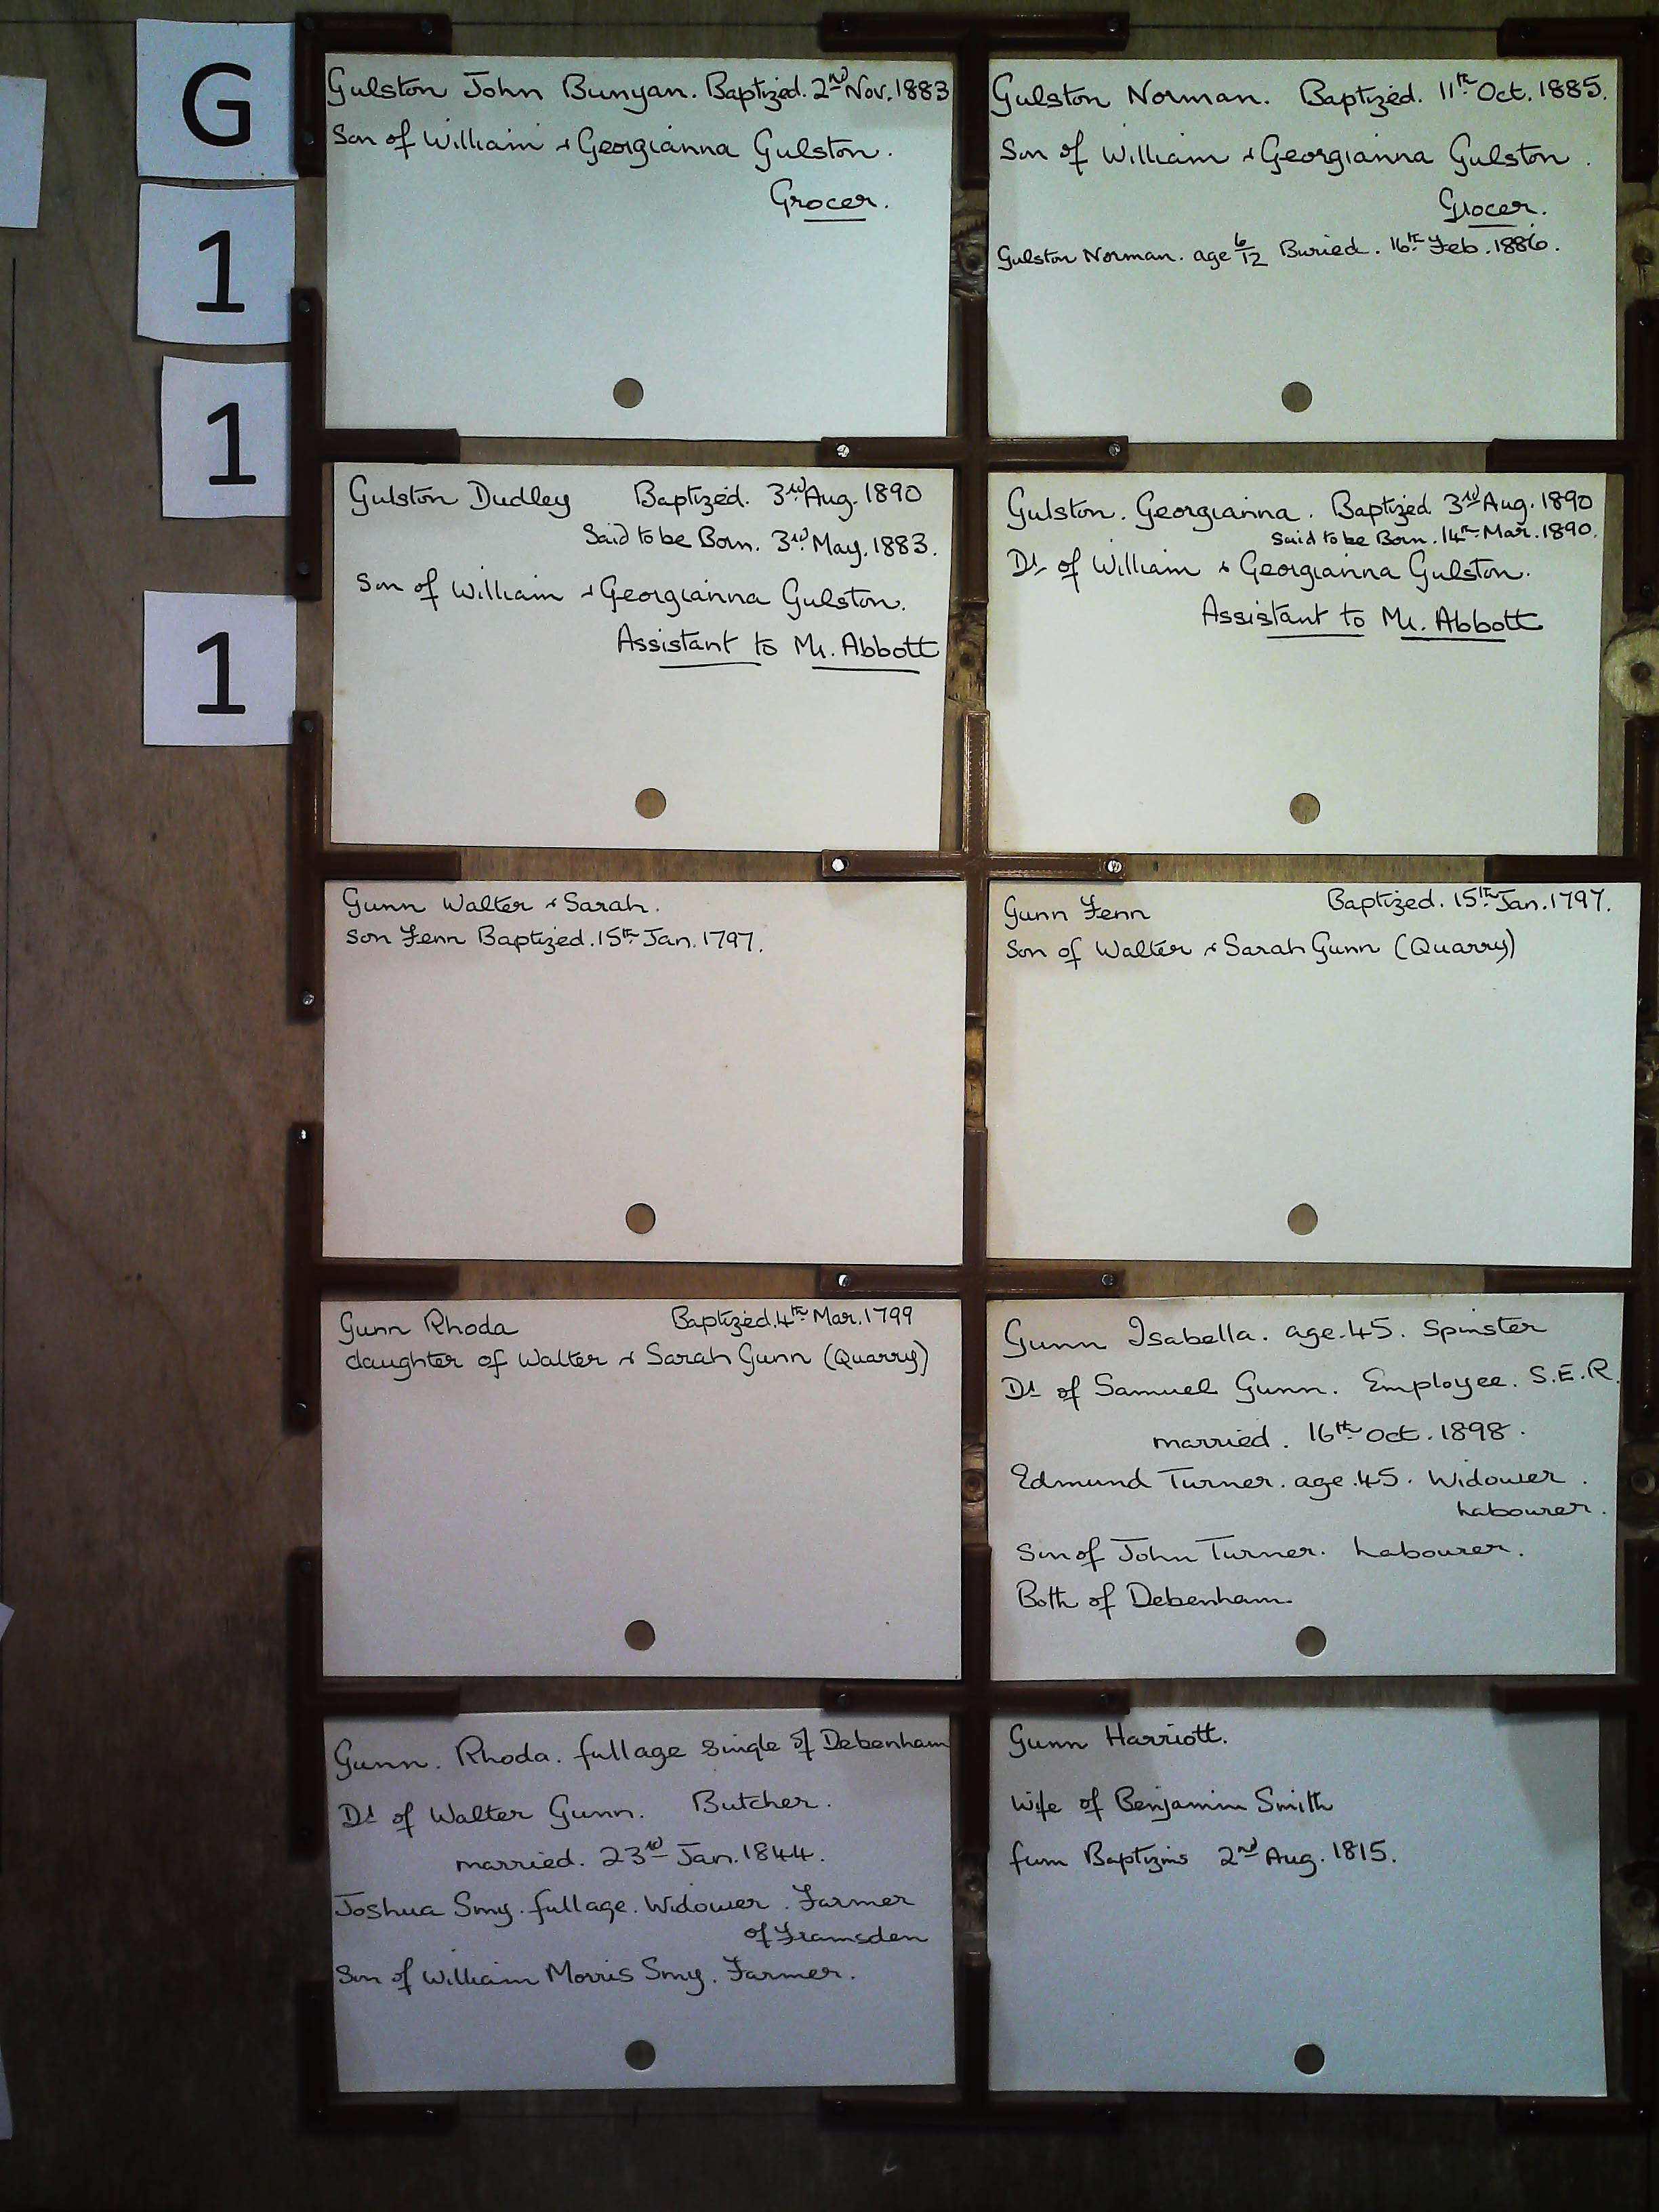 G
1
1
1
Gulston John Bunyan. Baptized. 2nd Nov. 1883
Son of William & Georgianna Gulston.
Grocer.
Gulston Norman. Baptized. 11th Oct. 1885.
Son of William & Georgianna Gulston.
Grocer.
Gulston Norman. age 6/12 Buried. 16th Feb. 1886.
Gulston Dudley Baptized. 3rd Aug. 1890
Said to be Born. 3rd May. 1883.
Son of William & Georgianna Gulston.
Assistant to Mr. Abbott
Gulston. Georgianna. Baptized 3rd Aug. 1890
Said to be Born. 14th Mar. 1890.
Dr of William & Georgianna Gulston.
Assistant to Mr. Abbott
Gunn Walter & Sarah.
Son Fenn Baptized. 15th Jan. 1797.
Gunn Fenn Baptized. 15th Jan. 1797.
Son of Walter & Sarah Gunn (Quarry)
Gunn Rhoda Baptized. 4th Mar. 1799
daughter of Walter & Sarah Gunn (Quarry)
Gunn Isabella. age. 45. Spinster
Dr of Samuel Gunn. Employee. S.E.R.
married. 16th Oct. 1898.
Edmund Turner. age. 45. Widower.
Labourer.
Son of John Turner. Labourer.
Both of Debenham.
Gunn. Rhoda. full age Single of Debenham
Dr of Walter Gunn. Butcher.
married. 23rd Jan. 1844.
Joshua Smy. full age. Widower. Farmer
of Framsden
Son of William Morris Smy. Farmer.
Gunn Harriott.
Wife of Benjamin Smith
from Baptizms 2nd Aug. 1815.